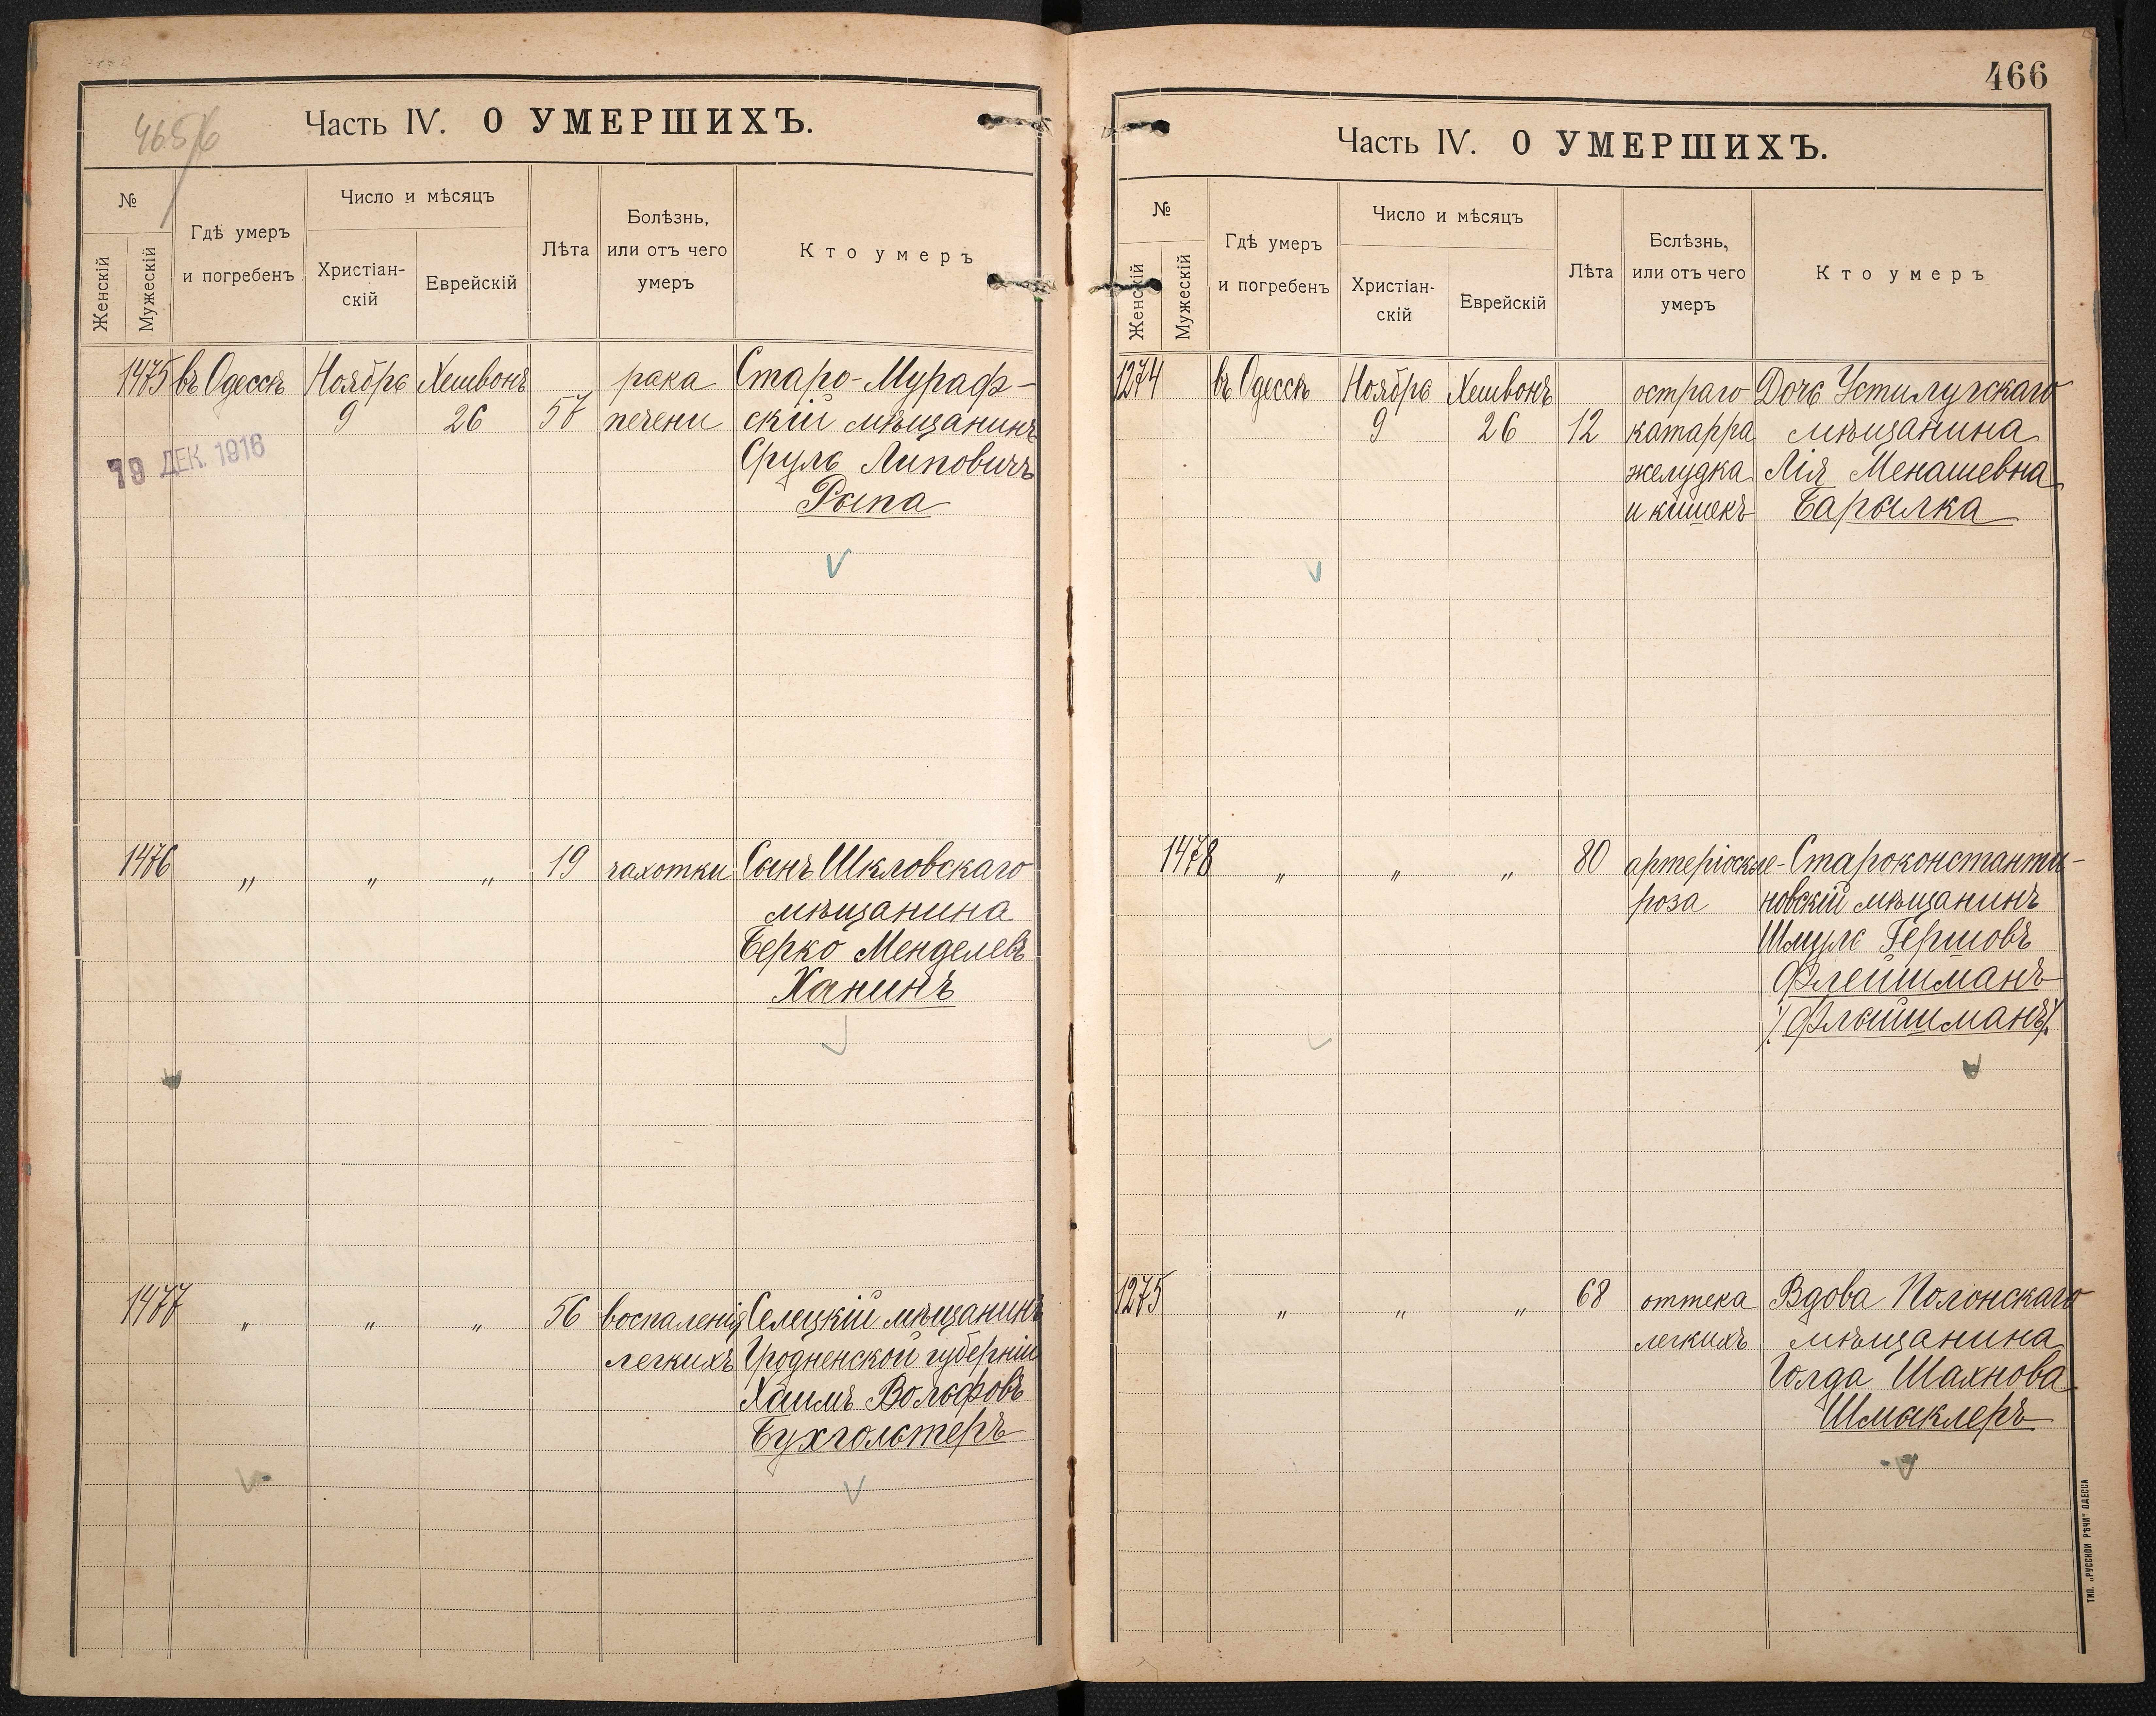 465/6
Часть IV. О УМЕРШИХЪ.
№
Женскій
Мужескій
Гдѣ умеръ
и погребенъ
Число и мѣсяцъ
Христіан-
скій
Еврейскій
Лѣта
Болѣзнь,
или отъ чего
умеръ
Кто умеръ
1475 въ Одессѣ Ноябрь Хешвонъ рака Старо-Мураф-
9 26 57 печени скій мѣщанинъ
19 ДЕК. 1916
Сруль Липовичъ
Рыпа
1476 „ „ „ 19 чахотки Сынъ Шкловскаго
мѣщанина
Берко Менделевъ
Ханинъ
1477 „ „ „ 56 воспаленія Селецкій мѣщанинъ
легкихъ Гродненской губерніи
Хаимъ Вольфовъ
Бухгольтеръ
466
Часть IV. О УМЕРШИХЪ.
№
Женскій
Мужескій
Гдѣ умеръ
и погребенъ
Число и мѣсяцъ
Христіан-
скій
Еврейскій
Лѣта
Бслѣзнь,
или отъ чего
умеръ
Кто умеръ
1274 въ Одессѣ Ноябрь Хешвонъ остраго Дочь Устилугскаго
9 26 12 катарра мѣщанина
желудка Лія Менашевна
и кишекъ Барылка
1478 „ „ „ 80 артеріоскле- Староконстанти-
роза новскій мѣщанинъ
Шмуль Гершовъ
Флейшманъ
/Флайшманъ/
1275 „ „ „ 68 оттека Вдова Полонскаго
легкихъ мѣщанина
Голда Шахнова
Шмыклеръ
ТИП. „РУССКОЙ РѢЧИ" ОДЕССА